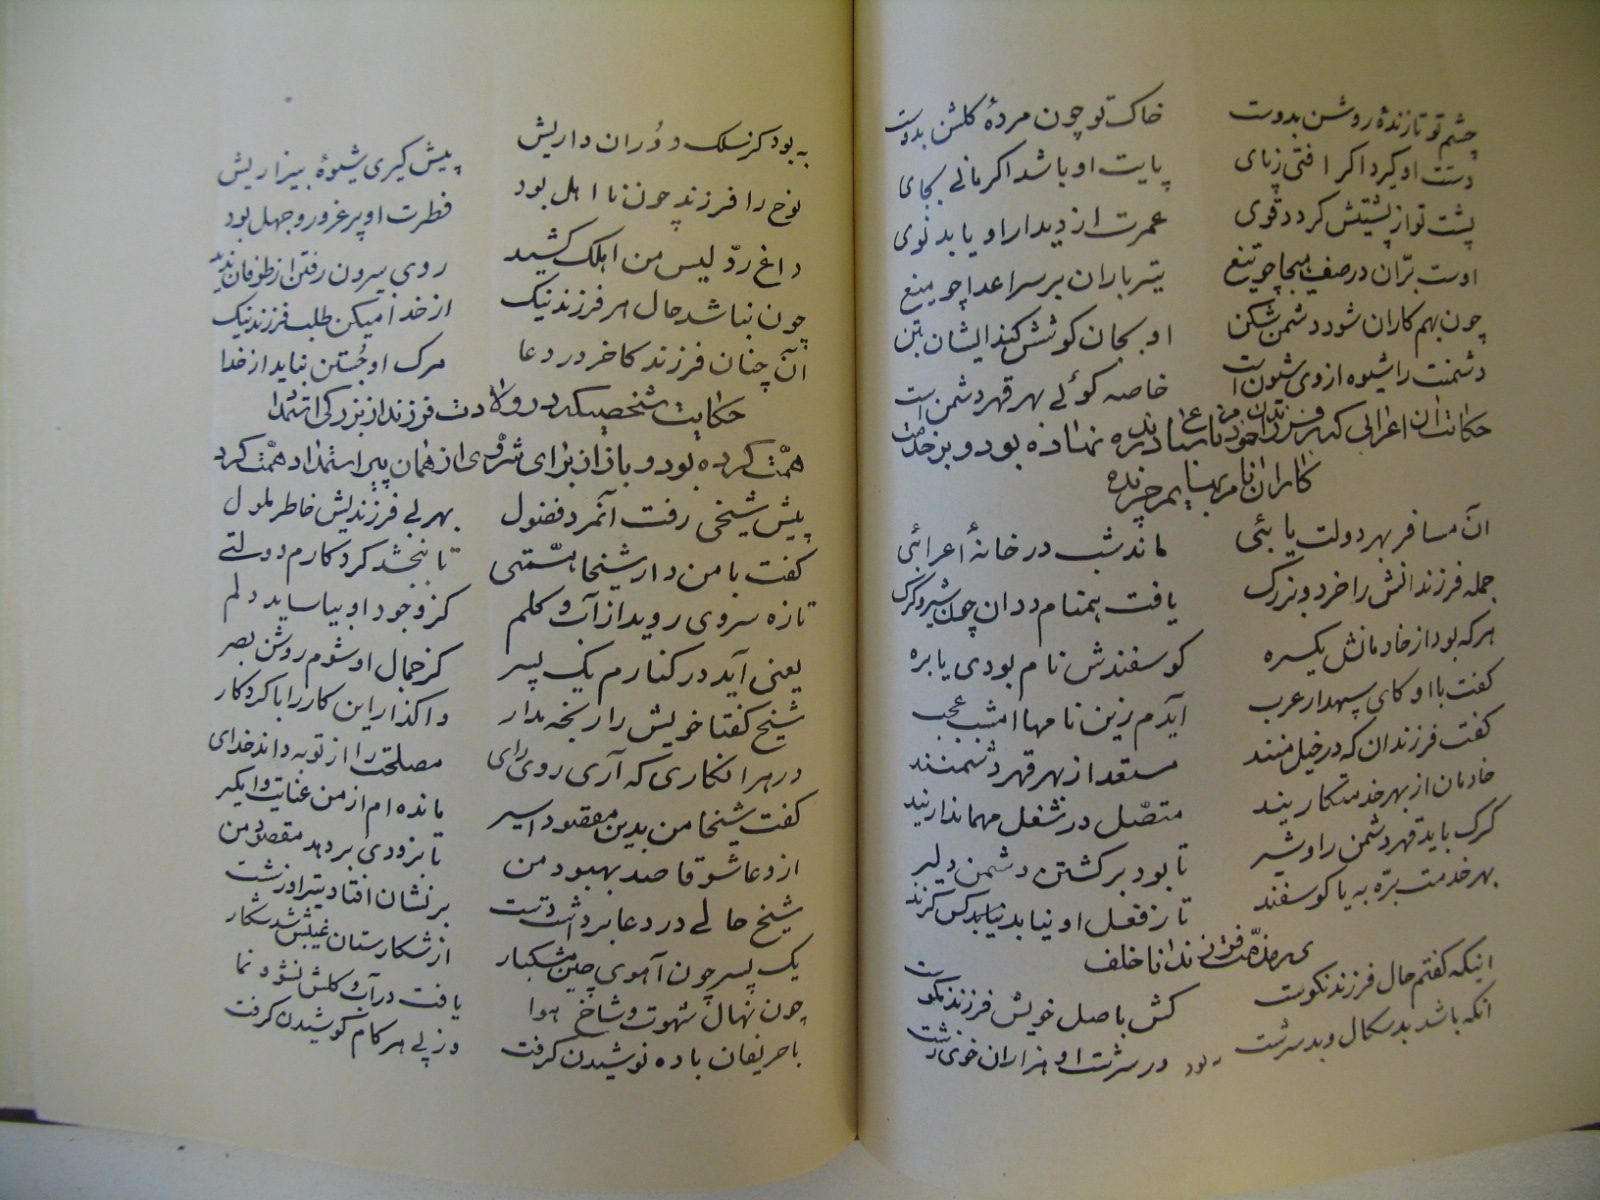 چشم تو تا زندهٔ روشن بدوست خاک تو چون مردهٔ گلشن بدوست
دستت او گیرد اگر افتی ز پای پایت او باشد اگر مانی بجای
پشت تو از پشتیش گردد قوی عمرت از دیدار او یابد نوی
اوست برّان در صف هیجا چو تیغ تیر باران بر سر اعدا چو میغ
چون بهم کاران شود دشمن شکن او بجان کوشش کند ایشان بتن
دشمنت را شیوه از وی شیون است خاصه گوئی بهر قهر دشمن است
حکایت آن اعرابی که فرزندان خود را نامهای درنده نهاده بود و بر خدمت
کاران نام بهایم چرنده
آن مسافر بهر دولت یابئی ماند شب در خانهٔ اعرابئی
جمله فرزندانش را خرد و بزرگ یافت همنام ددان چون شیر و گرگ
هر که بود از خادمانش یکسره گوسفندش نام بودی یا بره
گفت با او کای سپهدار عرب آیدم زین نامها امشب عجب
گفت فرزندان که در خیل منند مستعد از بهر قهر دشمنند
خادمان از بهر خدمتکاریند متصّل در شغل مهمانداریند
گرگ باید قهر دشمن را و شیر تا بود بر کشتن دشمن دلیر
بهر خدمت برّه به یا گوسفند تا ز فعل او نیابد کس گزند
در مذمّت فرزند ناخلف
اینکه گفتم حال فرزند نکوست کش باصل خویش فرزند نکوست
آنکه باشد بد سگال و بد سرشت در سرشت او هزاران خوی زشت
به بود
به بود کز سلک دوران داریش پیش گیری شیوهٔ بیزاریش
نوح را فرزند چون نا اهل بود فطرت او پر غرور و جهل بود
داغ ردّ لیس من اهلک کشید روی بیرون رفتن از طوفان ندید
چون نباشد حال هر فرزند نیک از خدا میکن طلب فرزند نیک
آن چنان فرزند کاخر در دعا مرگ او جستن بباید از خدا
حکایت شخصیکه در ولادت فرزند از بزرگی استمداد
همّت کرده بود و باز از برای شر وی از همان پیر استمداد همّت کرد
پیش شیخی رفت آنمرد فضول بهر بی فرزندیش خاطر ملول
گفت با من دار شیخا همّتی تا ببخشد کردگارم دولتی
تازه سروی روید از آب و گلم کز وجود او بیاساید دلم
یعنی آید در کنارم یک پسر کز جمال او شوم روشن بصر
شیخ گفتا خویش را رنجه مدار واگذار این کار را با کردگار
در هر آنکاری که آری روی رای مصلحت را از تو به داند خدای
گفت شیخا من بدین مقصود اسیر مانده ام از من عنایت وامگیر
از دعا شو قاصد بهبود من تا بزودی بر دهد مقصود من
شیخ حالی در دعا برداشت دست بر نشان افتاد تیر او ز شست
یک پسر چون آهوی چین مشکبار از شکارستان غیبش شد شکار
چون نهال شهوت و شاخ هوا یافت در آب و گلش نشو و نما
با حریفان باده نوشیدن گرفت وز پی هر کام کوشیدن گرفت